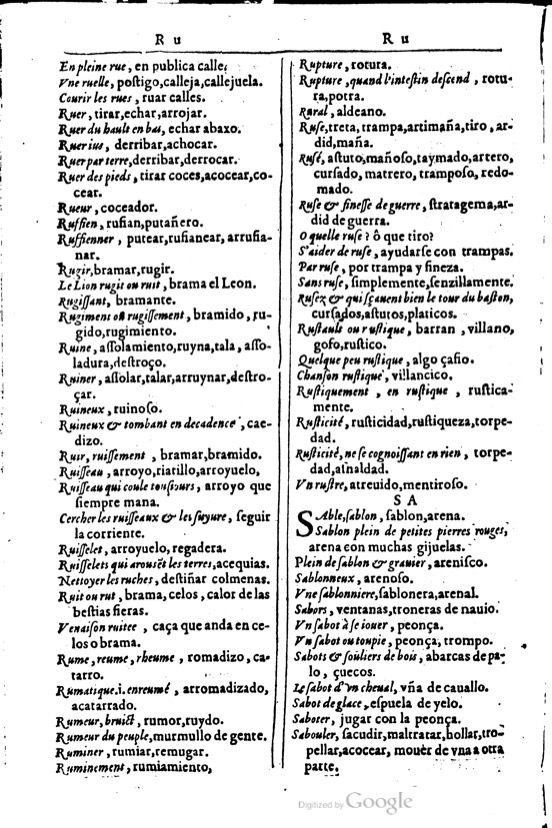 R u
En pleine rue, en publica calle.
Vne ruelle, poſtigo,calleja,callejuela.
Courir les rues, ruar calles.
Ruer, tirar,echar,arrojar.
Ruer du hault en bas, echar abaxo.
Ruer ius, derribar,achocar.
Ruer par terre,derribar,derrocar.
Ruer des pieds, tirar coces,acocear,co-
cear.
Rueur, coceador.
Ruffien, rufian,putañero.
Ruffienner, putear,rufianear, arrufia-
nar.
Rugir,bramar,rugir.
Le Lion rugit ou ruit, brama el Leon.
Rugiſſant, bramante.
Rugiment ou rugiſſement, bramido, ru-
gido,rugimiento.
Ruine, aſſolamiento,ruyna,tala, aſſo-
ladura,deſtroço.
Ruiner, aſſolar,talar,arruynar,deſtro-
çar.
Ruineux, ruinoſo.
Ruineux & tombant en decadence, cae-
dizo.
Ruir, ruiſſement, bramar,bramido.
Ruiſſeau, arroyo,riatillo,arroyuelo,
Ruiſſeau qui coule touſiours, arroyo que
ſiempre mana.
Cercher les ruiſſeaux & les ſuyure, ſeguir
la corriente.
Ruiſſelet, arroyuelo, regadera.
Ruiſſelets qui arousēt les terres,acequias.
Nettoyer les ruches, deſtiñar colmenas.
Ruit ou rut, brama, celos, calor de las
beſtias fieras.
Venaiſon ruitee, caça que anda en ce-
los o brama.
Rume, reume, rheume, romadizo, ca-
tarro.
Rumatique.i.enreumé, arromadizado,
acatarrado.
Rumeur, bruict, rumor,ruydo.
Rumeur du peuple,murmullo de gente.
Ruminer, rumiar,remugar.
Ruminement, rumiamiento,
R u
Rupture, rotura.
Rupture, quand l'inteſtin deſcend, rotu-
ra,potra.
Rural, aldeano.
Ruſe,treta, trampa,artimaña,tiro, ar-
did,maña.
Ruſé, aſtuto,mañoſo,taymado,artero,
curſado, matrero, trampoſo, redo-
mado.
Ruſe & fineſſe de guerre, ſtratagema,ar-
did de guerra.
O quelle ruſe? ô que tiro?
S'aider de ruſe, ayudarſe con trampas.
Par ruſe, por trampa y fineza.
Sans ruſe, ſimplemente,ſenzillamente.
Ruſez & qui ſçauent bien le tour du baſton,
curſados,aſtutos,platicos.
Ruſtault ou ruſtique, barran, villano,
gofo,ruſtico.
Quelque peu ruſtique, algo çafio.
Chanſon ruſtique, villancico.
Ruſtiquement, en ruſtique, ruſtica-
mente.
Ruſticité, ruſticidad,ruſtiqueza,torpe-
dad.
Ruſticité, ne ſe cognoiſſant en rien, torpe-
dad,aſnaldad.
Vn ruſtre, atreuido,mentiroſo.
S A
SAble,ſablon, ſablon,arena.
Sablon plein de petites pierres rouges,
arena con muchas gijuelas.
Plein de ſablon & grauier, areniſco.
Sablonneux, arenoſo.
Vne ſablonniere,ſablonera,arenal.
Sabors, ventanas,troneras de nauio.
Vn ſabot à ſe iouer, peonça.
Vn ſabot ou toupie, peonça, trompo.
Sabots & ſouliers de bois, abarcas de pa-
lo, çuecos.
Le ſabot d'vn cheual, vña de cauallo.
Sabot de glace, eſpuela de yelo.
Saboter, jugar con la peonça.
Sabouler, ſacudir,maltratar,hollar,tro-
pellar,acocear, mouèr de vna a otra
parte.
Digitized by Google